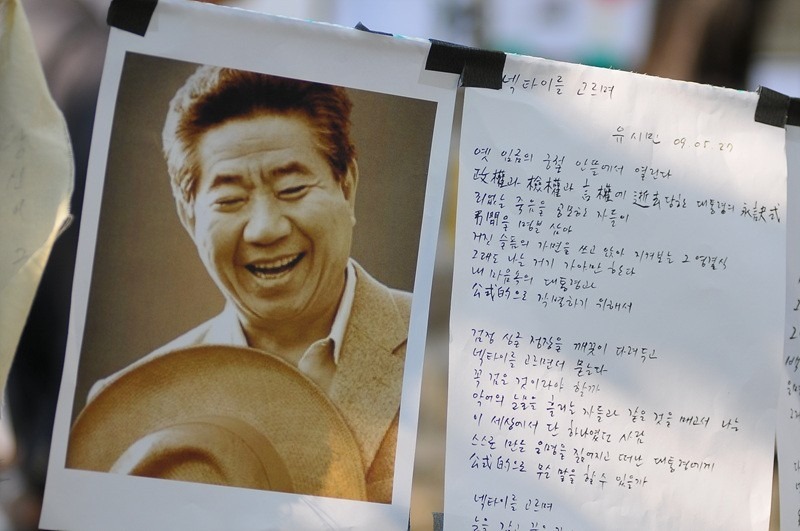 넥타이를 고르며
유시민 09.05.27
옛 임금의 궁궐 안뜰에서 열린다
政權과 檢權과 言權에 逝去당한 대통령의 永訣式
죄없는 죽음을 공모한 자들이
弔問을 명분 삼아
거짓 슬픔의 가면을 쓰고 앉아 지켜보는 그 영결식
그래도 나는 거기 가야만 한다
내 마음속의 대통령과
公式的으로 작별하기 위해서
검정 싱글 정장을 깨끗이 다려두고
넥타이를 고르면서 묻는다
꼭 검은 것이라야 할까
악어의 눈물을 흘리는 자들과 같은 것을 매고서 나는
이 세상에서 단 하나였던 사람
스스로 만든 운명을 짊어지고 떠난 대통령에게
公式的으로 무슨 말을 할 수 있을까
넥타이를 고르며
눈을 감고